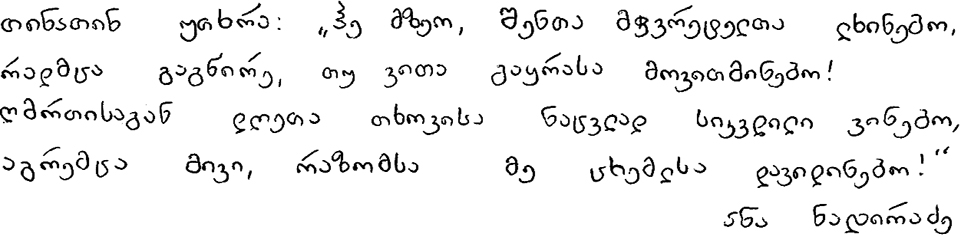 თინათინ უთხრა: „ჰე მზეო, შენთა მჭვრეტელთა ლხინებო,
რადმცა გაგწირე, თუ ვითა გაყრასა მოვითმინებო!
ღმრთისაგან დღეთა თხოვისა ნაცვლად სიკვდილი ვინებო,
აგრემცა მივი, რაზომსა მე ცრემლსა დავიდინებო!“
ანა ნადირაძე